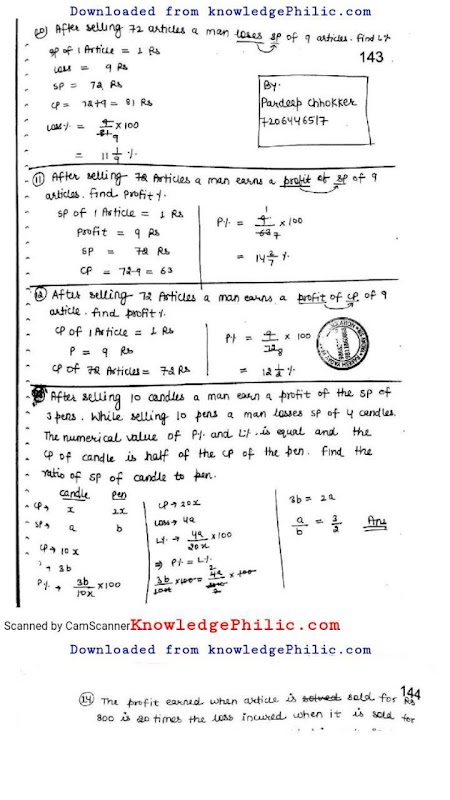 Downloaded from knowledgePhilic.com
10) After selling 72 articles a man loses SP of 9 articles. Find L%
143
SP of 1 Article = 1 Rs
Loss = 9 Rs
SP = 72 Rs
CP = 72+9 = 81 Rs
Loss% = 9/81 9 × 100
= 11 1/9 %
By:
Pardeep Chhokker
7206446517
11) After selling 72 Articles a man earns a profit of SP of 9
articles. find Profit%.
SP of 1 Article = 1 Rs
Profit = 9 Rs
SP = 72 Rs
CP = 72-9 = 63
P% = 1 9/63 7 × 100
= 14 2/7 %
12) After selling 72 Articles a man earns a profit of CP of 9
article. find profit%.
CP of 1 Article = 1 Rs
P = 9 Rs
CP of 72 Articles = 72 Rs
P% = 9/72 8 × 100
= 12 1/2 %
After selling 10 candles a man earn a profit of the SP of
3 pens. While selling 10 pens a man losses SP of 4 candles.
The numerical value of P% and L% is equal and the
CP of candle is half of the CP of the pen. Find the
ratio of SP of candle to pen.
candle pen
CP→ x 2x
SP→ a b
CP→ 10x
→ 3b
P% → 3b/10x × 100
CP→ 20x
Loss→ 4a
L% → 4a/20x × 100
⇒ P% = L%
3b/10x × 100 = 4a/20x × 100
3b = 2a
a/b = 3/2 Ans
Scanned by CamScanner KnowledgePhilic.com
Downloaded from knowledgePhilic.com
144
14) The profit earned when article is solved sold for Rs
800 is 20 times the loss incured when it is sold for